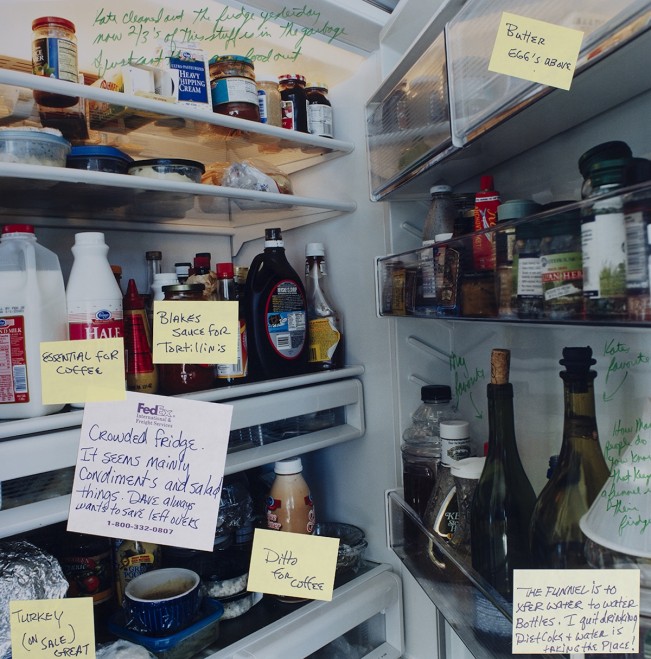 Kate cleaned out the fridge yesterday
now 2/3's of this stuff is in the garbage
HEAVY
WHIPPING
CREAM
Butter
EGG'S ABOVE
HALF
ESSENTIAL FOR
COFFEE
BLAKES
SAUCE FOR
TORTILLINI'S
FedEx
International &
Freight Services
CROWDED fRidge.
IT SEEMS MAINLY
CONDIMENTS AND SALAD
THINGS. DAVE ALWAYS
WANTS TO SAVE LEFT OVERS
1-800-332-0807
Ditto
FOR
COFFEE
TURKEY
(ON SALE)
GREAT
My
favorite
Kate
favorite
How many
people do
You know
that keep
a funnel in
their
fridge
THE FUNNEL IS TO
XFER WATER TO WATER
BOTTLES. I QUIT DRINKING
DIET COKE & WATER IS
TAKING THE PLACE!